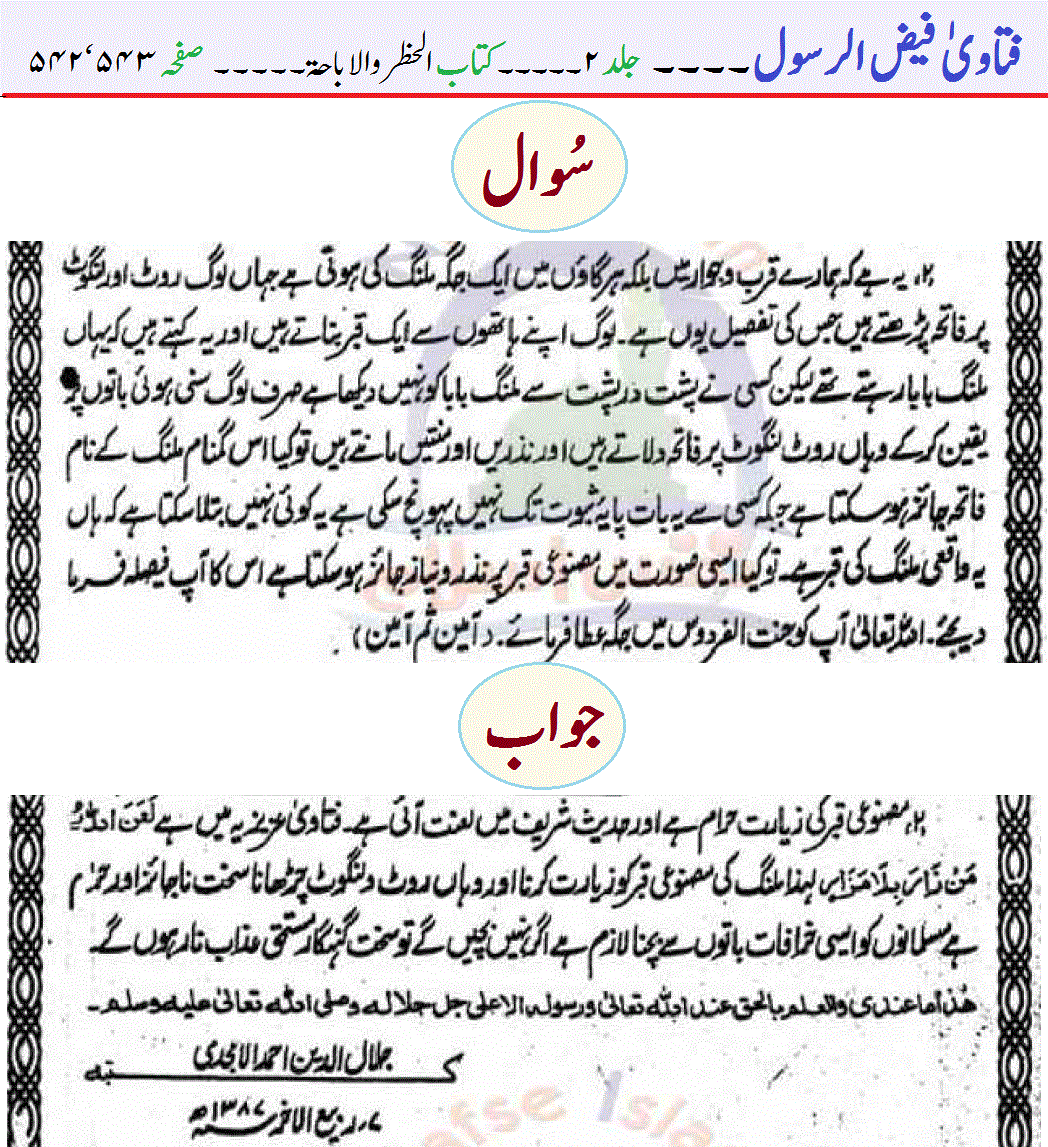 فتاویٰ فیض الرسول ---- جلد ۲ ----- کتاب الحظر والاباحۃ ----- صفحہ ۵۴۲،۵۴۳
سُوال
۲، یہ ہے کہ ہمارے قرب وجوار میں بلکہ ہر گاؤں میں ایک جگہ ملنگ کی ہوتی ہے جہاں لوگ روٹ اور لنگوٹ
پر فاتحہ پڑھتے ہیں جس کی تفصیل یوں ہے۔ لوگ اپنے ہاتھوں سے ایک قبر بناتے ہیں اور یہ کہتے ہیں کہ یہاں
ملنگ بابا رہتے تھے لیکن کسی نے پشت در پشت سے ملنگ بابا کو نہیں دیکھا ہے صرف لوگ سنی ہوئی باتوں پر
یقین کر کے وہاں روٹ لنگوٹ پر فاتحہ دلاتے ہیں اور نذریں اور منتیں مانتے ہیں تو کیا اس گمنام ملنگ کے نام
فاتحہ جائز ہو سکتا ہے جبکہ کسی سے یہ بات پایۂ ثبوت تک نہیں پہونچ سکی ہے یہ کوئی نہیں بتلا سکتا ہے کہ ہاں
یہ واقعی ملنگ کی قبر ہے۔ تو کیا ایسی صورت میں مصنوعی قبر پر نذر و نیاز جائز ہو سکتا ہے اس کا آپ فیصلہ فرما
دیجئے۔ اللہ تعالیٰ آپ کو جنت الفردوس میں جگہ عطا فرمائے۔ (آمین ثم آمین)
جواب
۲، مصنوعی قبر کی زیارت حرام ہے اور حدیث شریف میں لعنت آئی ہے۔ فتاویٰ عزیزیہ میں ہے لَعَنَ اللہُ
مَنْ زَارَ بِلَا مَزَار لہذا ملنگ کی مصنوعی قبر کو زیارت کرنا اور وہاں روٹ و لنگوٹ چڑھانا سخت ناجائز اور حرام
ہے مسلمانوں کو ایسی خرافات باتوں سے بچنا لازم ہے اگر نہیں بچیں گے تو سخت گنہگار مستحق عذاب نار ہوں گے۔
ھٰذا ما عندی والعلم بالحق عند اللہ تعالیٰ ورسولہ الاعلی جل جلالہ وصلی اللہ تعالیٰ علیہ وسلم۔
جلال الدین احمد الامجدی
کتبہ
۷ ربیع الآخر سنہ ۱۳۸۷ھ